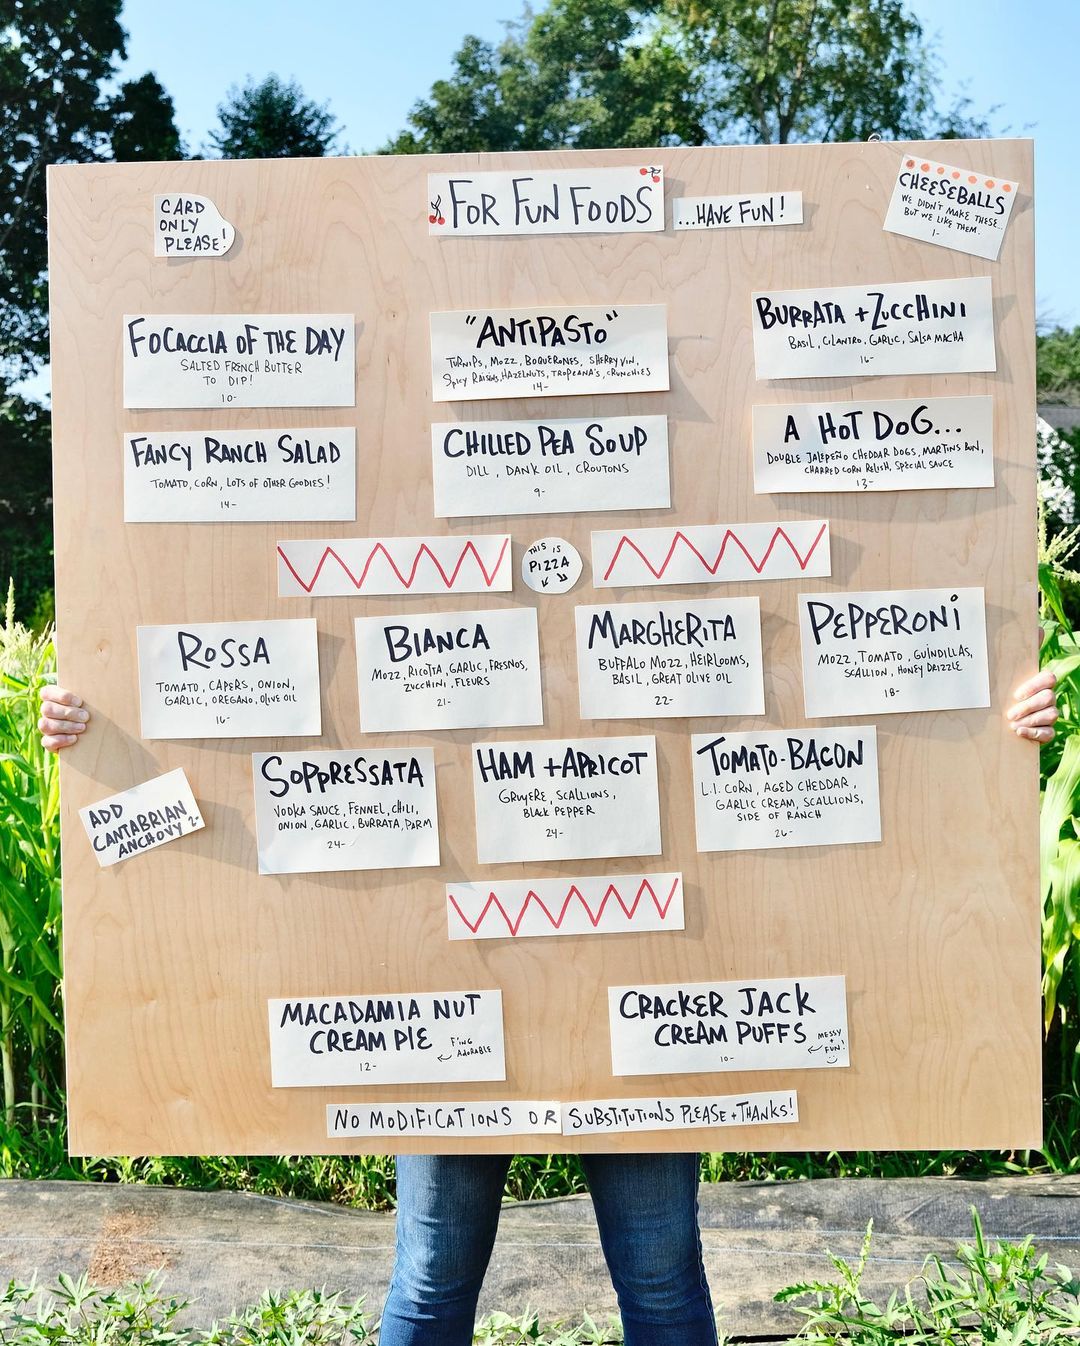 CARD
ONLY
PLEASE!
FOR FUN FOODS
...HAVE FUN!
CHEESEBALLS
WE DIDN'T MAKE THESE..
BUT WE LIKE THEM.
1-
FOCACCIA OF THE DAY
SALTED FRENCH BUTTER
TO DIP!
10-
"ANTIPASTO"
TURNIPS, MOZZ, BOQUERONES, SHERRY VIN,
SPICY RAISINS, HAZELNUTS, TROPEANA'S, CRUNCHIES
14-
BURRATA + ZUCCHINI
BASIL, CILANTRO, GARLIC, SALSA MACHA
16-
FANCY RANCH SALAD
TOMATO, CORN, LOTS OF OTHER GOODIES!
14-
CHILLED PEA SOUP
DILL, DANK OIL, CROUTONS
9-
A HOT DOG...
DOUBLE JALEPEÑO CHEDDAR DOGS, MARTINS BUN,
CHARRED CORN RELISH, SPECIAL SAUCE
13-
THIS IS
PIZZA
ROSSA
TOMATO, CAPERS, ONION,
GARLIC, OREGANO, OLIVE OIL
16-
BIANCA
MOZZ, RICOTTA, GARLIC, FRESNOS,
ZUCCHINI, FLEURS
21-
MARGHERITA
BUFFALO MOZZ, HEIRLOOMS,
BASIL, GREAT OLIVE OIL
22-
PEPPERONI
MOZZ, TOMATO, GUINDILLAS,
SCALLION, HONEY DRIZZLE
18-
ADD
CANTABRIAN
ANCHOVY 2-
SOPPRESSATA
VODKA SAUCE, FENNEL, CHILI,
ONION, GARLIC, BURRATA, PARM
24-
HAM + APRICOT
GRUYERE, SCALLIONS,
BLACK PEPPER
24-
TOMATO-BACON
L.I. CORN, AGED CHEDDAR,
GARLIC CREAM, SCALLIONS,
SIDE OF RANCH
26-
MACADAMIA NUT
CREAM PIE
F'ING
ADORABLE
12-
CRACKER JACK
CREAM PUFFS
MESSY
+
FUN!
10-
NO MODIFICATIONS OR SUBSTITUTIONS PLEASE + THANKS!